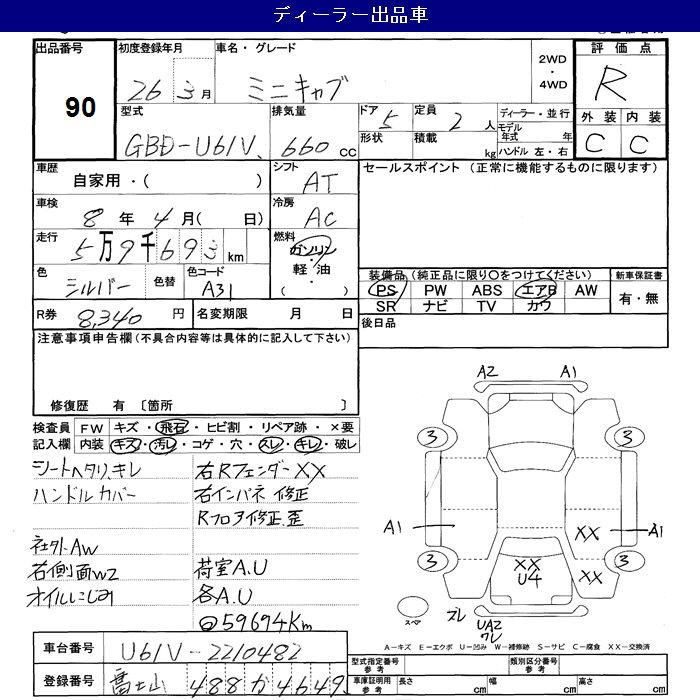 ディーラー出品車
出品番号 90
初度登録年月 26 3月
車名・グレード ミニキャブ
2WD・4WD
評価点 R
外装 C 内装 C
型式 GBD-U61V
排気量 660 cc
ドア 5
形状
定員 2人
積載 kg
ディーラー・並行
モデル年式 年
ハンドル 左・右
車歴 自家用・( )
シフト AT
セールスポイント (正常に機能するものに限ります)
車検 8年4月( 日)
冷房 AC
走行 5万9千693km
燃料 ガソリン・軽油・( )
色 シルバー 色替 色コード A31
装備品(純正品に限り○をつけてください)
新車保証書
PS PW ABS エアB AW
SR ナビ TV カワ
有・無
R券 8,340円
名変期限 月 日
後日品
注意事項申告欄(不具合内容等は具体的に記入して下さい)
修復歴 有 〔箇所 〕
検査員記入欄
FW キズ・飛石・ヒビ割・リペア跡・×要
内装 キズ・汚レ・コゲ・穴・スレ・キレ・破レ
シートヘタリ、キレ
ハンドルカバー
社外AW
右側面W2
オイルにじみ
右Rフェンダー XX
右インパネ 修正
Rフロア修正.歪
荷室A.U
各A.U
59694Km
A2 A1
3 3
A1 XX A1
3 XX U4 XX 3
スペア
ズレ UA2
ワレ
A-キズ E-エクボ U-凹み W-補修跡 S-サビ C-腐食 XX-交換済
車台番号 U61V-2210482
登録番号 富士山 488 か 4649
型式指定番号 参考
類別区分番号 参考
車庫証明用 参考 長さ cm 幅 cm 高さ cm